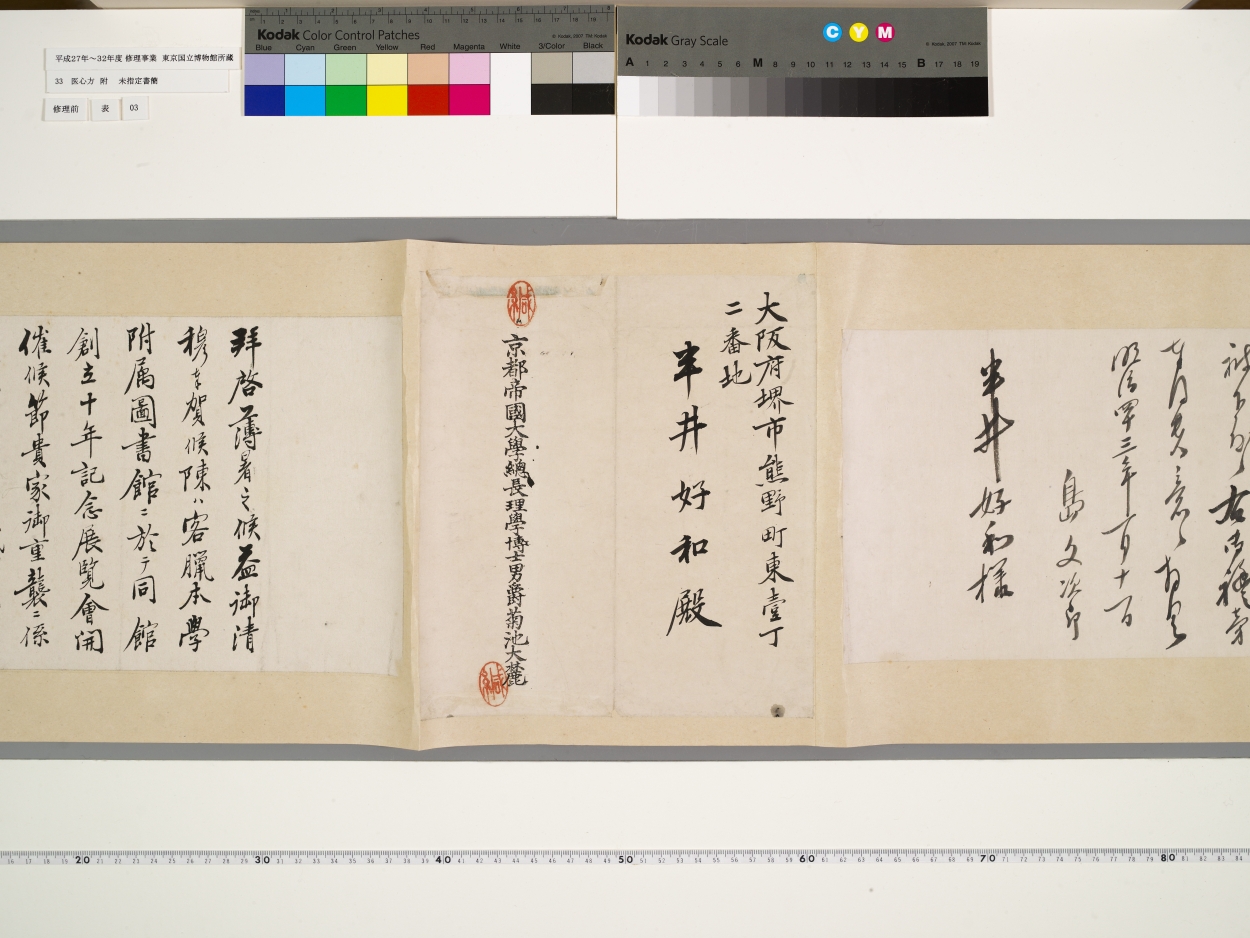 平成27年～32年度 修理事業 東京国立博物館所蔵
33 医心方 附 未指定書簡
修理前 表 03
Kodak Color Control Patches
Blue Cyan Green Yellow Red Magenta White 3/Color Black
Kodak Gray Scale
C Y M
A 1 2 3 4 5 6 M 8 9 10 11 12 13 14 15 B 17 18 19
明治四三年一百十一日
島文次郎
半井好和様
大阪府堺市熊野町東壹丁
二番地
半井好和殿
緘
京都帝國大學總長理學博士男爵菊池大麓
緘
拜啓薄暑之候益御清
穆奉賀候陳ハ客臘本學
附属圖書館ニ於テ同館
創立十年記念展覧會開
催候節貴家御重襲ニ係
20 30 40 50 60 70 80